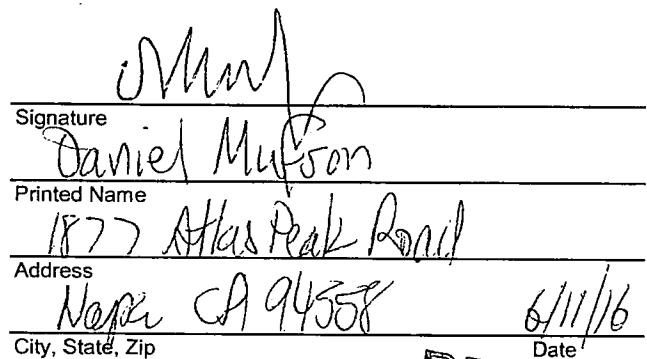 Signature
Daniel Mufson
Printed Name
1877 Atlas Peak Road
Address
Napa CA 94558 6/11/16
City, State, Zip Date